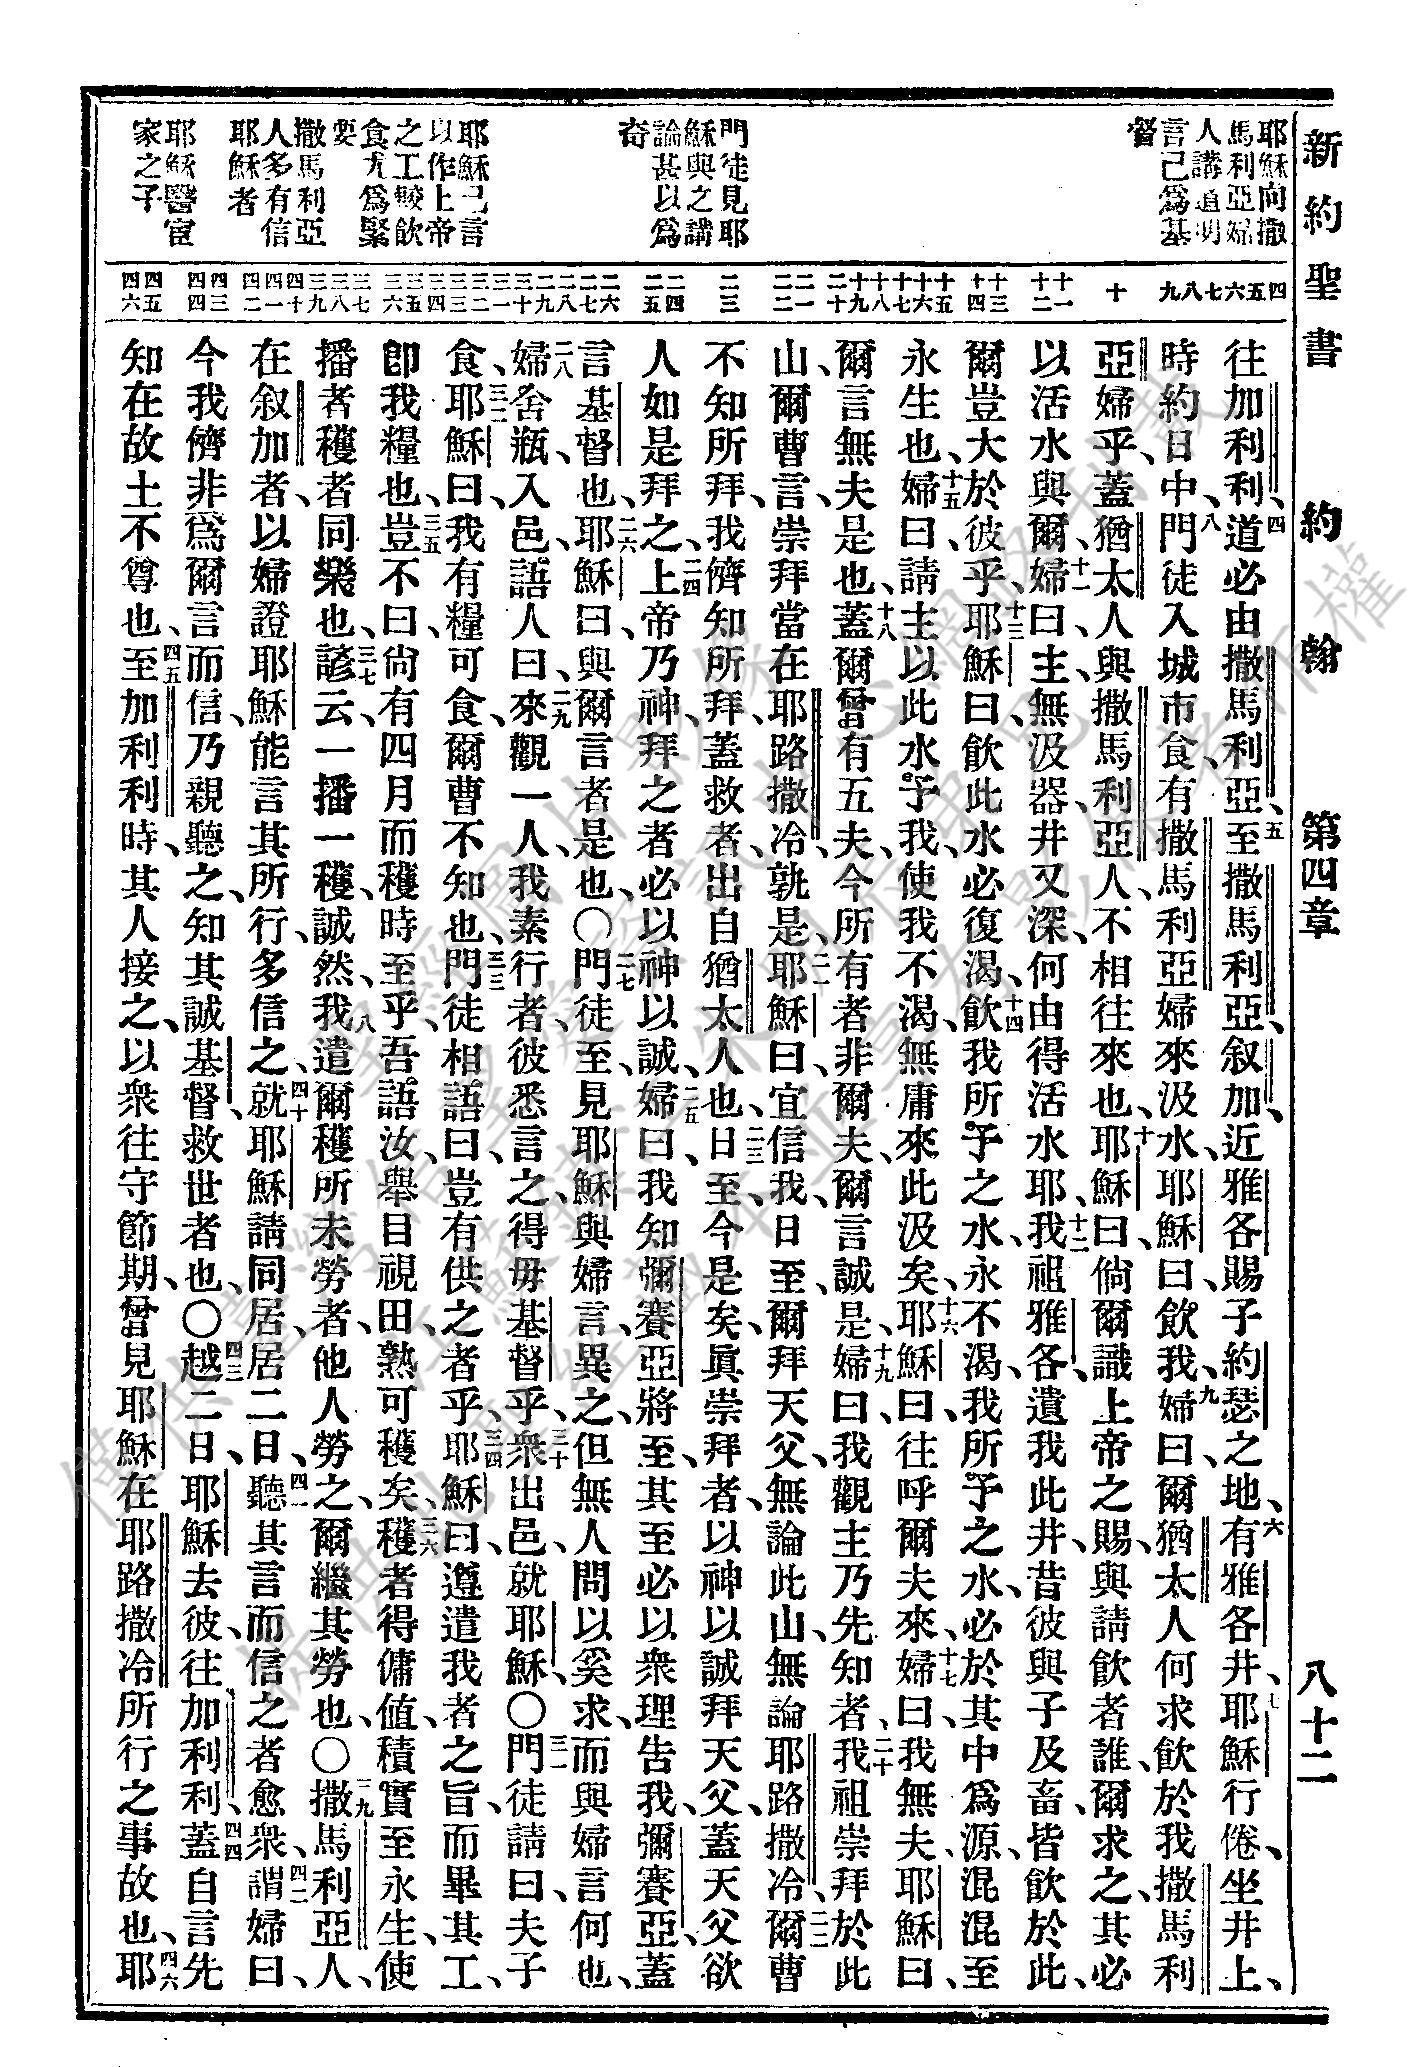 新約聖書 約翰 第四章 八十二
耶穌向撒
馬利亞婦
人講道明
言己爲基
督
門徒見耶
穌與之講
論甚以爲
奇
耶穌己言
以作上帝
之工較飲
食尤爲緊
要
撒馬利亞
人多有信
耶穌者
耶穌醫宦
家之子
四 五 六 七 八 九 十 十一 十二 十三 十四 十五 十六 十七 十八 十九 二十 二一 二二 二三 二四 二五 二六 二七 二八 二九 三十 三一 三二 三三 三四 三五 三六 三七 三八 三九 四十 四一 四二 四三 四四 四五 四六
往加利利、四道必由撒馬利亞、五至撒馬利亞、叙加、近雅各賜子約瑟之地、六有雅各井、七耶穌行倦、坐井上、
時約日中、八門徒入城市食、有撒馬利亞婦來汲水、耶穌曰、飲我、九婦曰、爾猶太人何求飲於我撒馬利
亞婦乎、蓋猶太人與撒馬利亞人、不相往來也、十耶穌曰、倘爾識上帝之賜、與請飲者誰、爾求之、其必
以活水與爾、十一婦曰、主、無汲器、井又深、何由得活水耶、十二我祖雅各、遺我此井、昔彼與子及畜、皆飲於此、
爾豈大於彼乎、十三耶穌曰、飲此水必復渴、十四飲我所予之水、永不渴、我所予之水、必於其中爲源、混混至
永生也、十五婦曰、請主以此水予我、使我不渴、無庸來此汲矣、十六耶穌曰、往呼爾夫來、十七婦曰、我無夫、耶穌曰、
爾言無夫是也、十八蓋爾曾有五夫、今所有者、非爾夫、爾言誠是、十九婦曰、我觀主乃先知者、二十我祖崇拜於此
山、爾曹言、崇拜當在耶路撒冷、孰是、二一耶穌曰、宜信我、日至、爾拜天父、無論此山、無論耶路撒冷、二二爾曹
不知所拜、我儕知所拜、蓋救者出自猶太人也、二三日至、今是矣、眞崇拜者、以神以誠拜天父、蓋天父欲
人如是拜之、二四上帝乃神、拜之者必以神以誠、二五婦曰、我知彌賽亞將至、其至必以衆理告我、彌賽亞蓋
言基督也、二六耶穌曰、與爾言者是也、○二七門徒至、見耶穌與婦言、異之、但無人問以奚求、而與婦言何也、
二八婦舍瓶、入邑、語人曰、二九來觀一人、我素行者、彼悉言之、得毋基督乎、三十衆出邑、就耶穌、○三一門徒請曰、夫子
食、三二耶穌曰、我有糧可食、爾曹不知也、三三門徒相語曰、豈有供之者乎、三四耶穌曰、遵遣我者之旨、而畢其工、
卽我糧也、三五豈不曰、尙有四月而穫時至乎、吾語汝、舉目視田、熟可穫矣、三六穫者得傭值、積實至永生、使
播者穫者同樂也、三七諺云、一播一穫、誠然、三八我遣爾穫所未勞者、他人勞之、爾繼其勞也、○三九撒馬利亞人、
在叙加者、以婦證耶穌能言其所行、多信之、四十就耶穌、請同居、居二日、四一聽其言而信之者愈衆、四二謂婦曰、
今我儕非爲爾言而信、乃親聽之、知其誠基督、救世者也、○四三越二日、耶穌去彼、往加利利、四四蓋自言先
知在故土不尊也、四五至加利利時、其人接之、以衆往守節期、曾見耶穌在耶路撒冷所行之事故也、四六耶